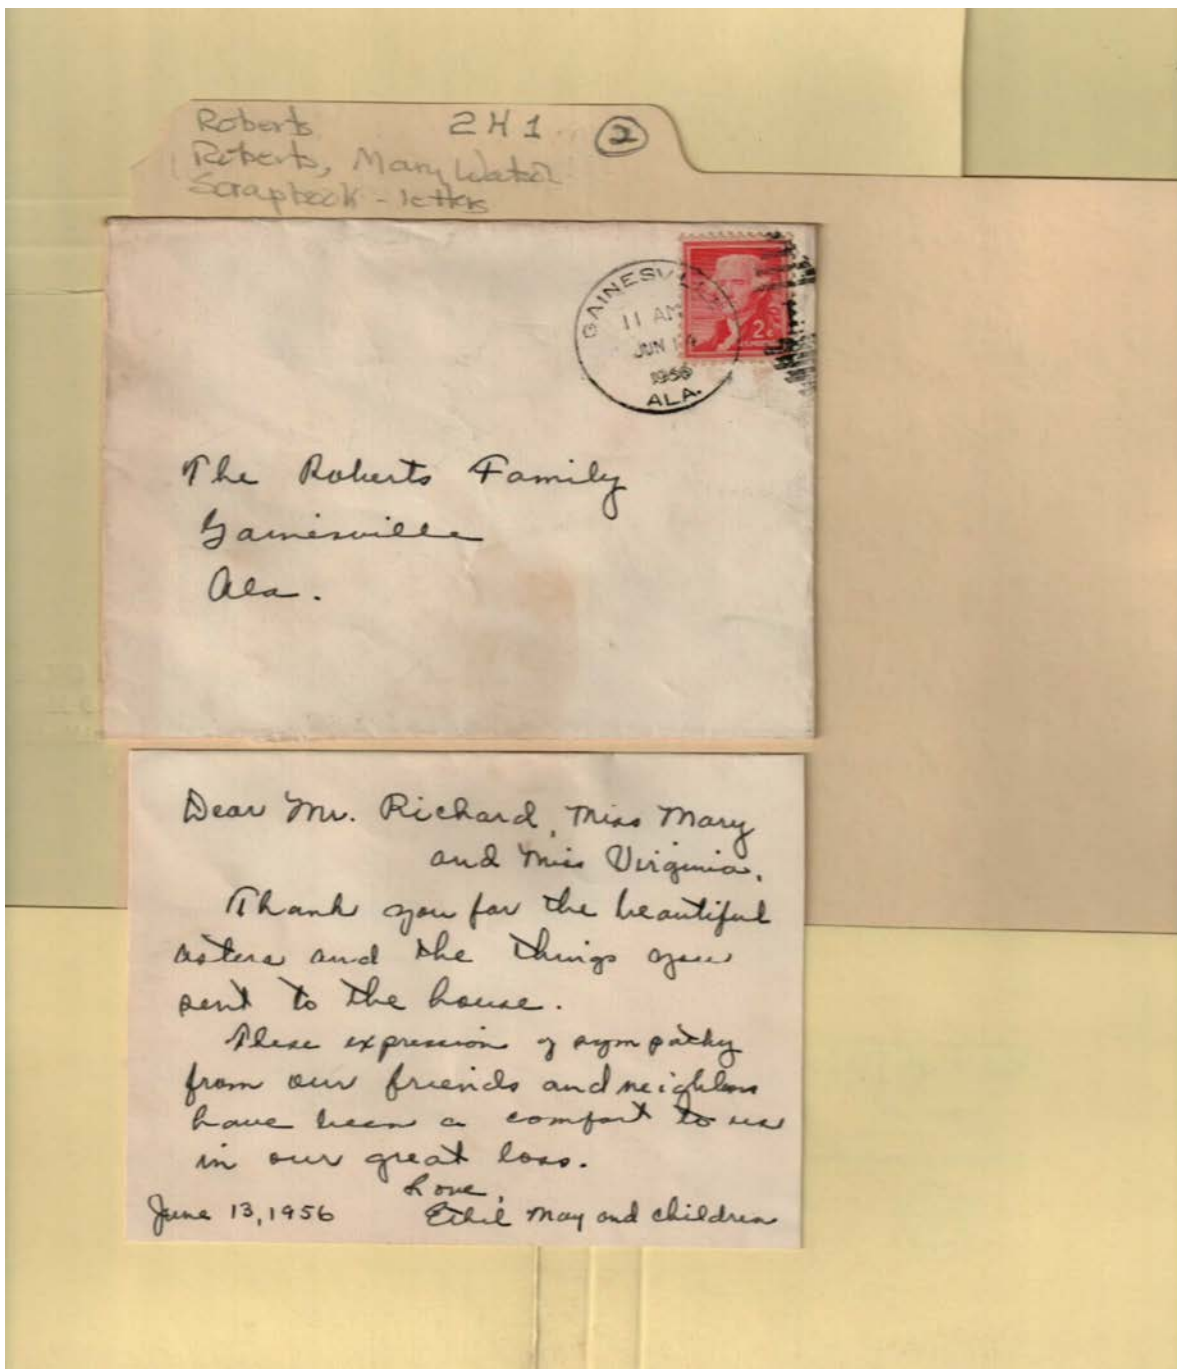 Roberts 2H1 2
Roberts, Mary Watson
Scrapbook - letters
GAINESVILLE
11 AM
JUN 14
1956
ALA.
2¢
The Roberts Family
Gainesville
Ala.
Dear Mr. Richard, Miss Mary
and Miss Virginia,
Thank you for the beautiful
asters and the things you
sent to the house.
These expression of sympathy
from our friends and neighbors
have been a comfort to us
in our great loss.
Love,
June 13, 1956 Ethel May and children